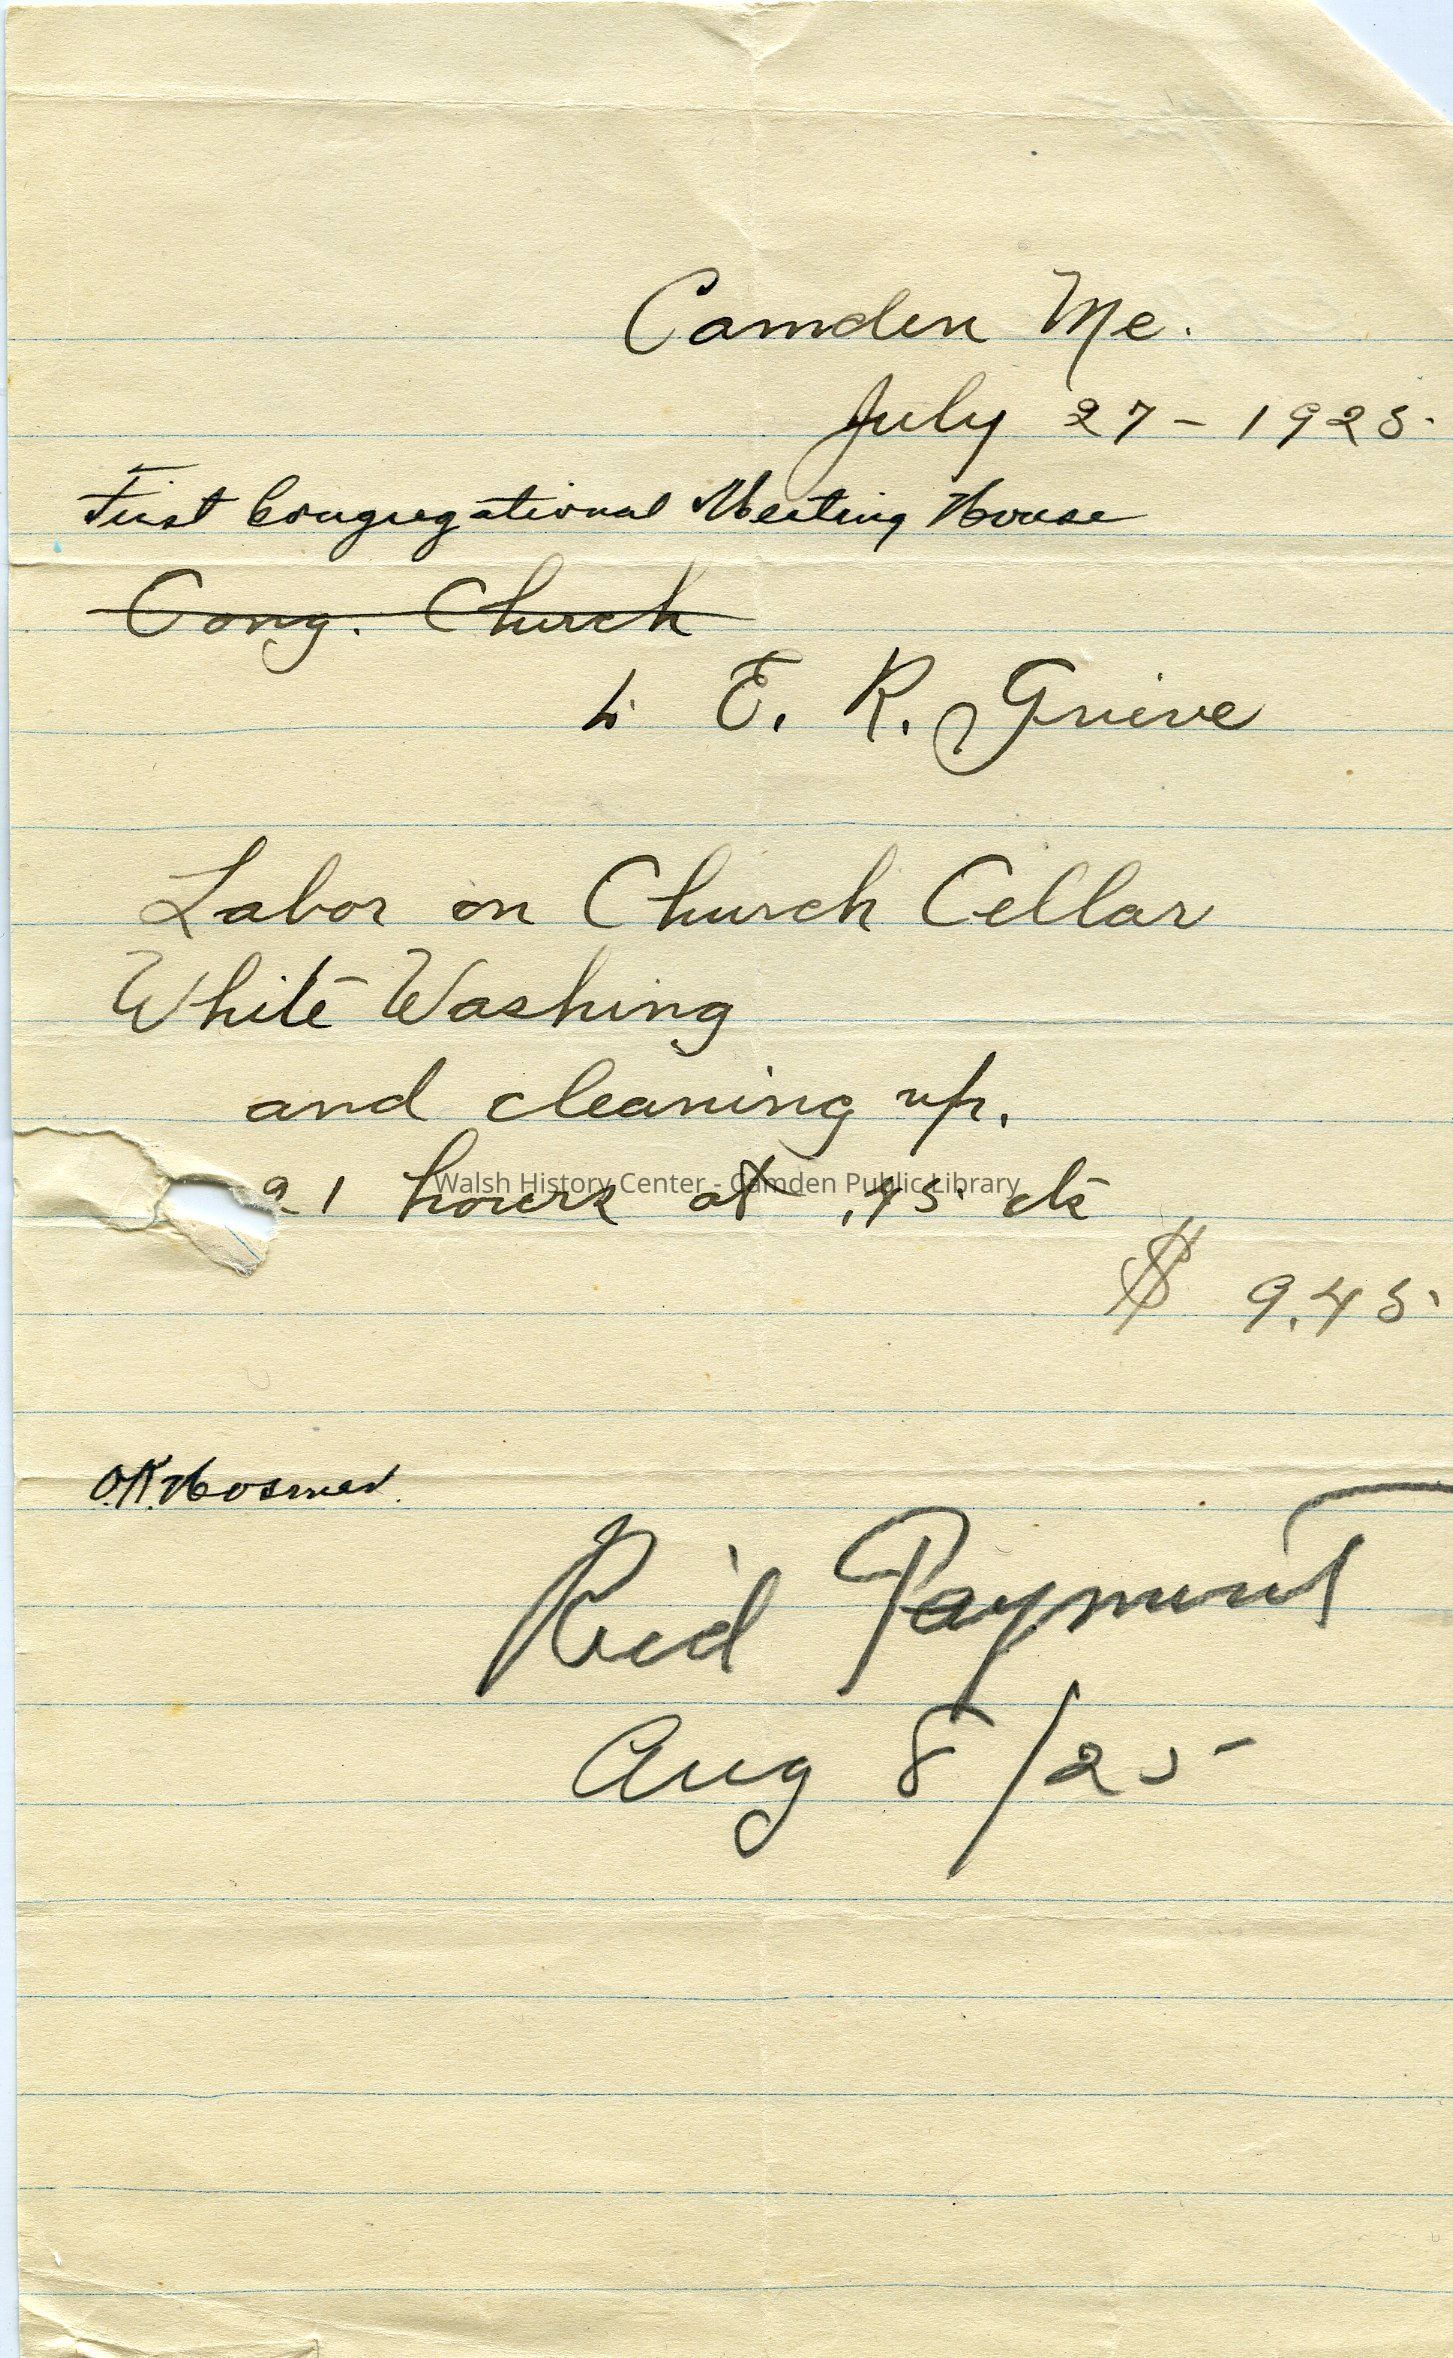 Camden Me.
July 27 - 1925.
First Congregational Meeting House
Cong. Church
to E. R. Grieve
Labor on Church Cellar
White Washing
and cleaning up.
21 hours at .45 cts
Walsh History Center - Camden Public Library
$ 9.45
O.K. Hosmer.
Rec'd Payment
Aug 8/25